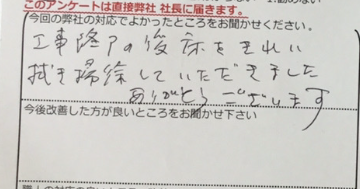 このアンケートは直接弊社 社長に届きます。
今回の弊社の対応でよかったところをお聞かせください。
工事終了の後床をきれい
拭き掃除していただきました
ありがとうございます
今後改善した方が良いところをお聞かせ下さい